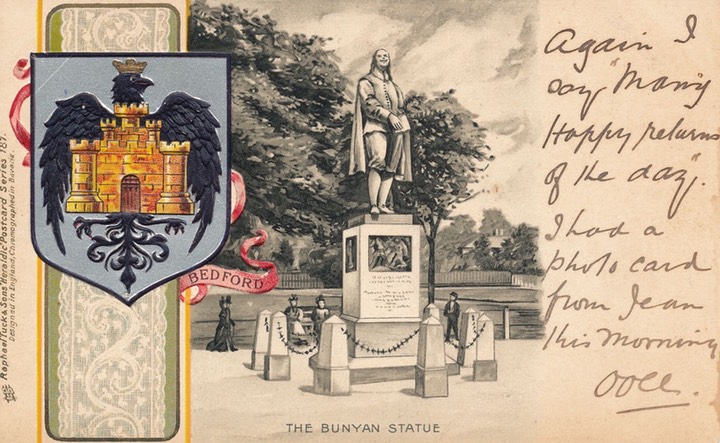 Raphael Tuck & Sons' "Heraldic" Postcard Series 187.
Designed in England, Chromographed in Bavaria.
BEDFORD
THE BUNYAN STATUE
Again I
say "Many
Happy returns
of the day".
I had a
photo card
from Jean
this Morning